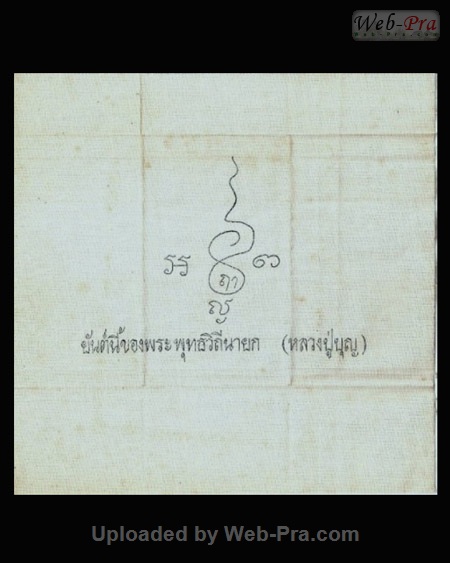 Web-Pra
Web-Pra.Com
ญ
ยันต์นี้ของพระพุทธวิถีนายก (หลวงปู่บุญ)
Uploaded by Web-Pra.com